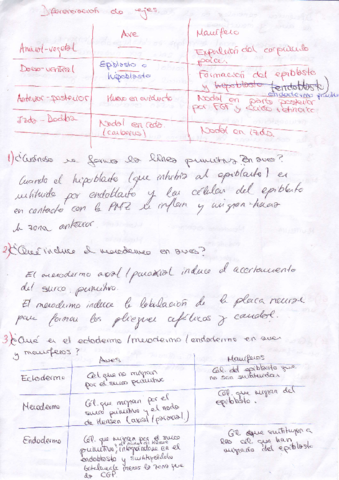 Diferenciación de ejes
Ave Mamífero
Animal-vegetal Expulsión del corpúsculo polar.
Dorso-ventral Epiblasto e hipoblasto Formación del epiblasto e hipoblasto (endoblasto
Anterior-posterior Nodal en parte posterior por FGF y ácido retinoico
Izda-Dcha Nodal en izda (cerberus) Nodal en izda.
1) ¿Cuándo se forma la línea primitiva en aves?
Cuando el hipoblasto (que inhibía al epiblasto) es
sustituido por endoblasto y las células del epiblasto
en contacto con la PMZ se inflan y migran hacia
la zona anterior
2) ¿Qué induce el mesodermo en aves?
El mesodermo axial/paraxial induce el acortamiento
del surco primitivo.
El mesodermo induce la tubulación de la placa neural
para formar los pliegues cefálicos y caudal.
3) ¿Qué es el ectodermo/mesodermo/endodermo en aves
y mamíferos?
Aves Mamíferos
Ectodermo Cél que no migran por el surco primitivo Cél del epiblasto que no son sustituidas.
Mesodermo Cél. que migran por el surco primitivo y el nodo de Hensen (axial/paraxial) Cél que migran del epiblasto.
Endodermo Cél. que migran por el surco primitivo, integrándose en el endoblasto y sustituyéndolo hacia la zona que da CGP Cél que sustituyen a las cél que han migrado del epiblasto